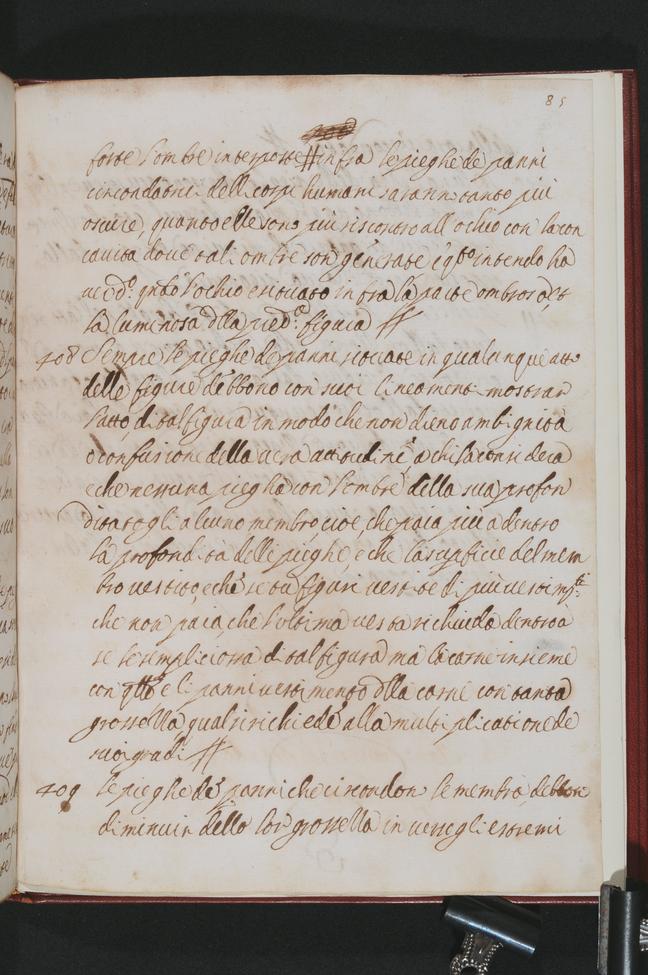 85
forte l'ombre interposte # infra le pieghe de panni
circondatrici delli corpi humani saranno tanto piu
oscure, quanto elle sono piu riscontro all'ochio con la con
cavita dove tali ombre son generate e qsto intendo ha
ver do. qndo l'ochio e situato infra la parte ombrosa, et
la luminosa dlla pred.a figura //
408 Sempre le pieghe de panni situate in qualunque atto
delle figure debbono con suoi lineamenti mostrar
l'atto di tal figura in modo che non dieno ambiguità
o confusione della vera attitudine a chi la considera
e che nessuna piegha con l'ombre della sua profon
dita togli alcuno membro, cioe, che paia piu a dentro
la profondita delle pieghe, e che la supficie del mem
bro vestito, e che se tu figuri vestite di piu vestim.ti
che non paia, che l'ultima vesta richiuda dentro a
se le semplici ossa di tal figura ma la carne insieme
con qlle e li panni vestimento dlla carne con tanta
grossezza, qual si richiede alla multiplicatione de
suoi gradi //
409 le pieghe de' panni che circondon le membra, debbon
diminuir dello lor grossezza inverso gli estremi